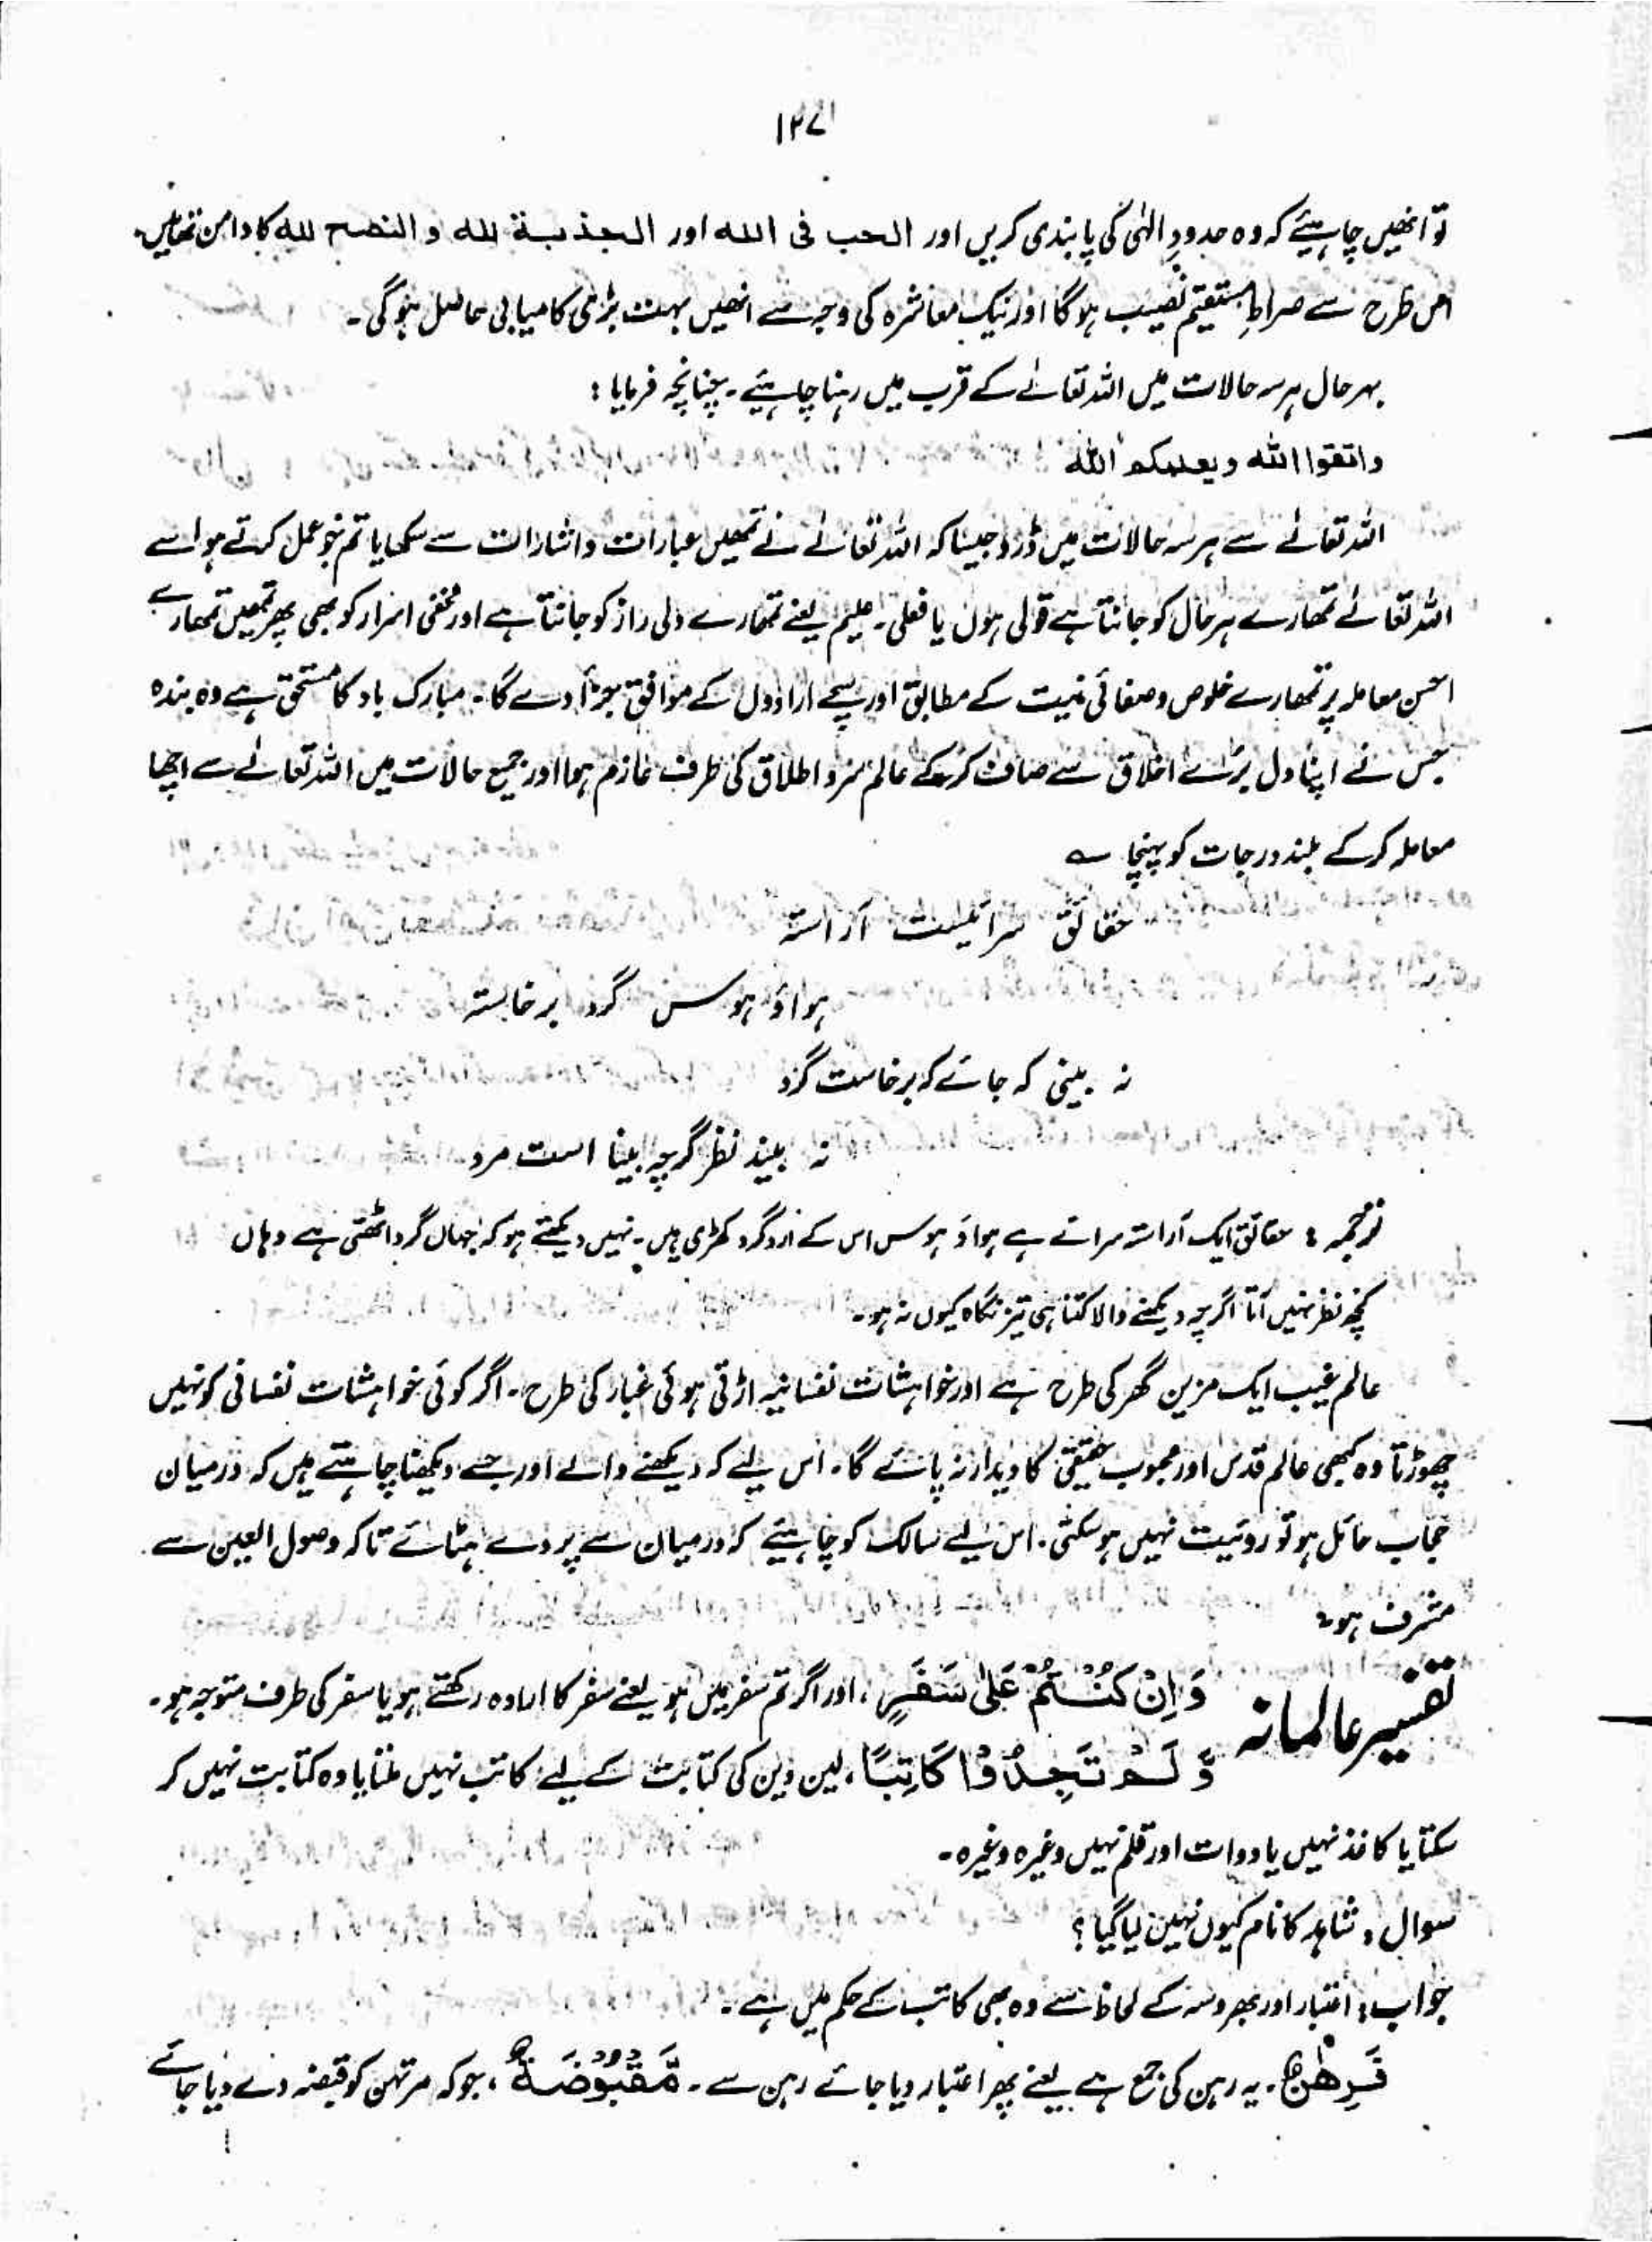 ۱۲۷
تو انھیں چاہیئے کہ وہ حدودِ الٰہی کی پابندی کریں اور الحب فی الله اور الجذبۃ لله و النصح لله کا دامن تھامیں۔
اس طرح سے صراطِ مستقیم نصیب ہوگا اور نیک معاشرہ کی وجہ سے انھیں بہت بڑی کامیابی حاصل ہوگی۔
بہرحال ہرسہ حالات میں اللہ تعالےٰ کے قرب میں رہنا چاہیئے۔ چنانچہ فرمایا :
واتقوا الله ویعلمکم الله
اللہ تعالےٰ سے ہرسہ حالات میں ڈرو جیسا کہ اللہ تعالےٰ نے تمھیں عبارات و اشارات سے سکھایا تم جو عمل کرتے ہو اسے
اللہ تعالےٰ تمھارے ہر حال کو جانتا ہے قولی ہوں یا فعلی۔ علیم یعنے تمھارے دلی راز کو جانتا ہے اور مخفی اسرار کو بھی پھر تمھیں تمھارے
احسن معاملہ پر تمھارے خلوص و صفائی نیت کے مطابق اور سچے ارادوں کے موافق جزأ دے گا۔ مبارک باد کا مستحق ہے وہ بندہ
جس نے اپنا دل برے اخلاق سے صاف کرکے عالم سر و اطلاق کی طرف عازم ہوا اور جمیع حالات میں اللہ تعالےٰ سے اچھا
معاملہ کرکے بلند درجات کو پہنچا ؎
حقائق سرائیست آراستہ
ہوا و ہوس گرد برخاستہ
نہ بینی کہ جائے کہ برخاست گرد
نہ بیند نظر گرچہ بینا است مرد
ترجمہ : حقائق ایک آراستہ سرائے ہے ہوا و ہوس اس کے اردگرد کھڑی ہیں۔ نہیں دیکھتے ہو کہ جہاں گرد اٹھتی ہے وہاں
کچھ نظر نہیں آتا اگرچہ دیکھنے والا کتنا ہی تیز نگاہ کیوں نہ ہو۔
عالم غیب ایک مزین گھر کی طرح ہے اور خواہشات نفسانیہ اڑتی ہوئی غبار کی طرح۔ اگر کوئی خواہشات نفسانی کو نہیں
چھوڑتا وہ کبھی عالم قدس اور محبوب حقیقی کا دیدار نہ پائے گا۔ اس لیے کہ دیکھنے والے اور جسے دیکھنا چاہتے ہیں کہ درمیان
حجاب حائل ہو تو روئیت نہیں ہوسکتی۔ اس لیے سالک کو چاہیئے کہ درمیان سے پردے ہٹائے تاکہ وصول العین سے
مشرف ہو۔
تفسیر عالمانہ وَ اِنْ کُنْتُمْ عَلٰی سَفَرٍ، اور اگر تم سفر میں ہو یعنے سفر کا ارادہ رکھتے ہو یا سفر کی طرف متوجہ ہو۔
وَّ لَمْ تَجِدُوْا کَاتِبًا، لین دین کی کتابت کے لیے کاتب نہیں ملتا یا وہ کتابت نہیں کر
سکتا یا کاغذ نہیں یا دوات اور قلم نہیں وغیرہ وغیرہ۔
سوال : شاہد کا نام کیوں نہیں لیا گیا ؟
جواب : اعتبار اور بھروسہ کے لحاظ سے وہ بھی کاتب کے حکم میں ہے۔
فَرِهٰنٌ۔ یہ رہن کی جمع ہے یعنے پھر اعتبار دیا جائے رہن سے۔ مَّقْبُوْضَةٌ، جو کہ مرتہن کو قبضہ دے دیا جائے